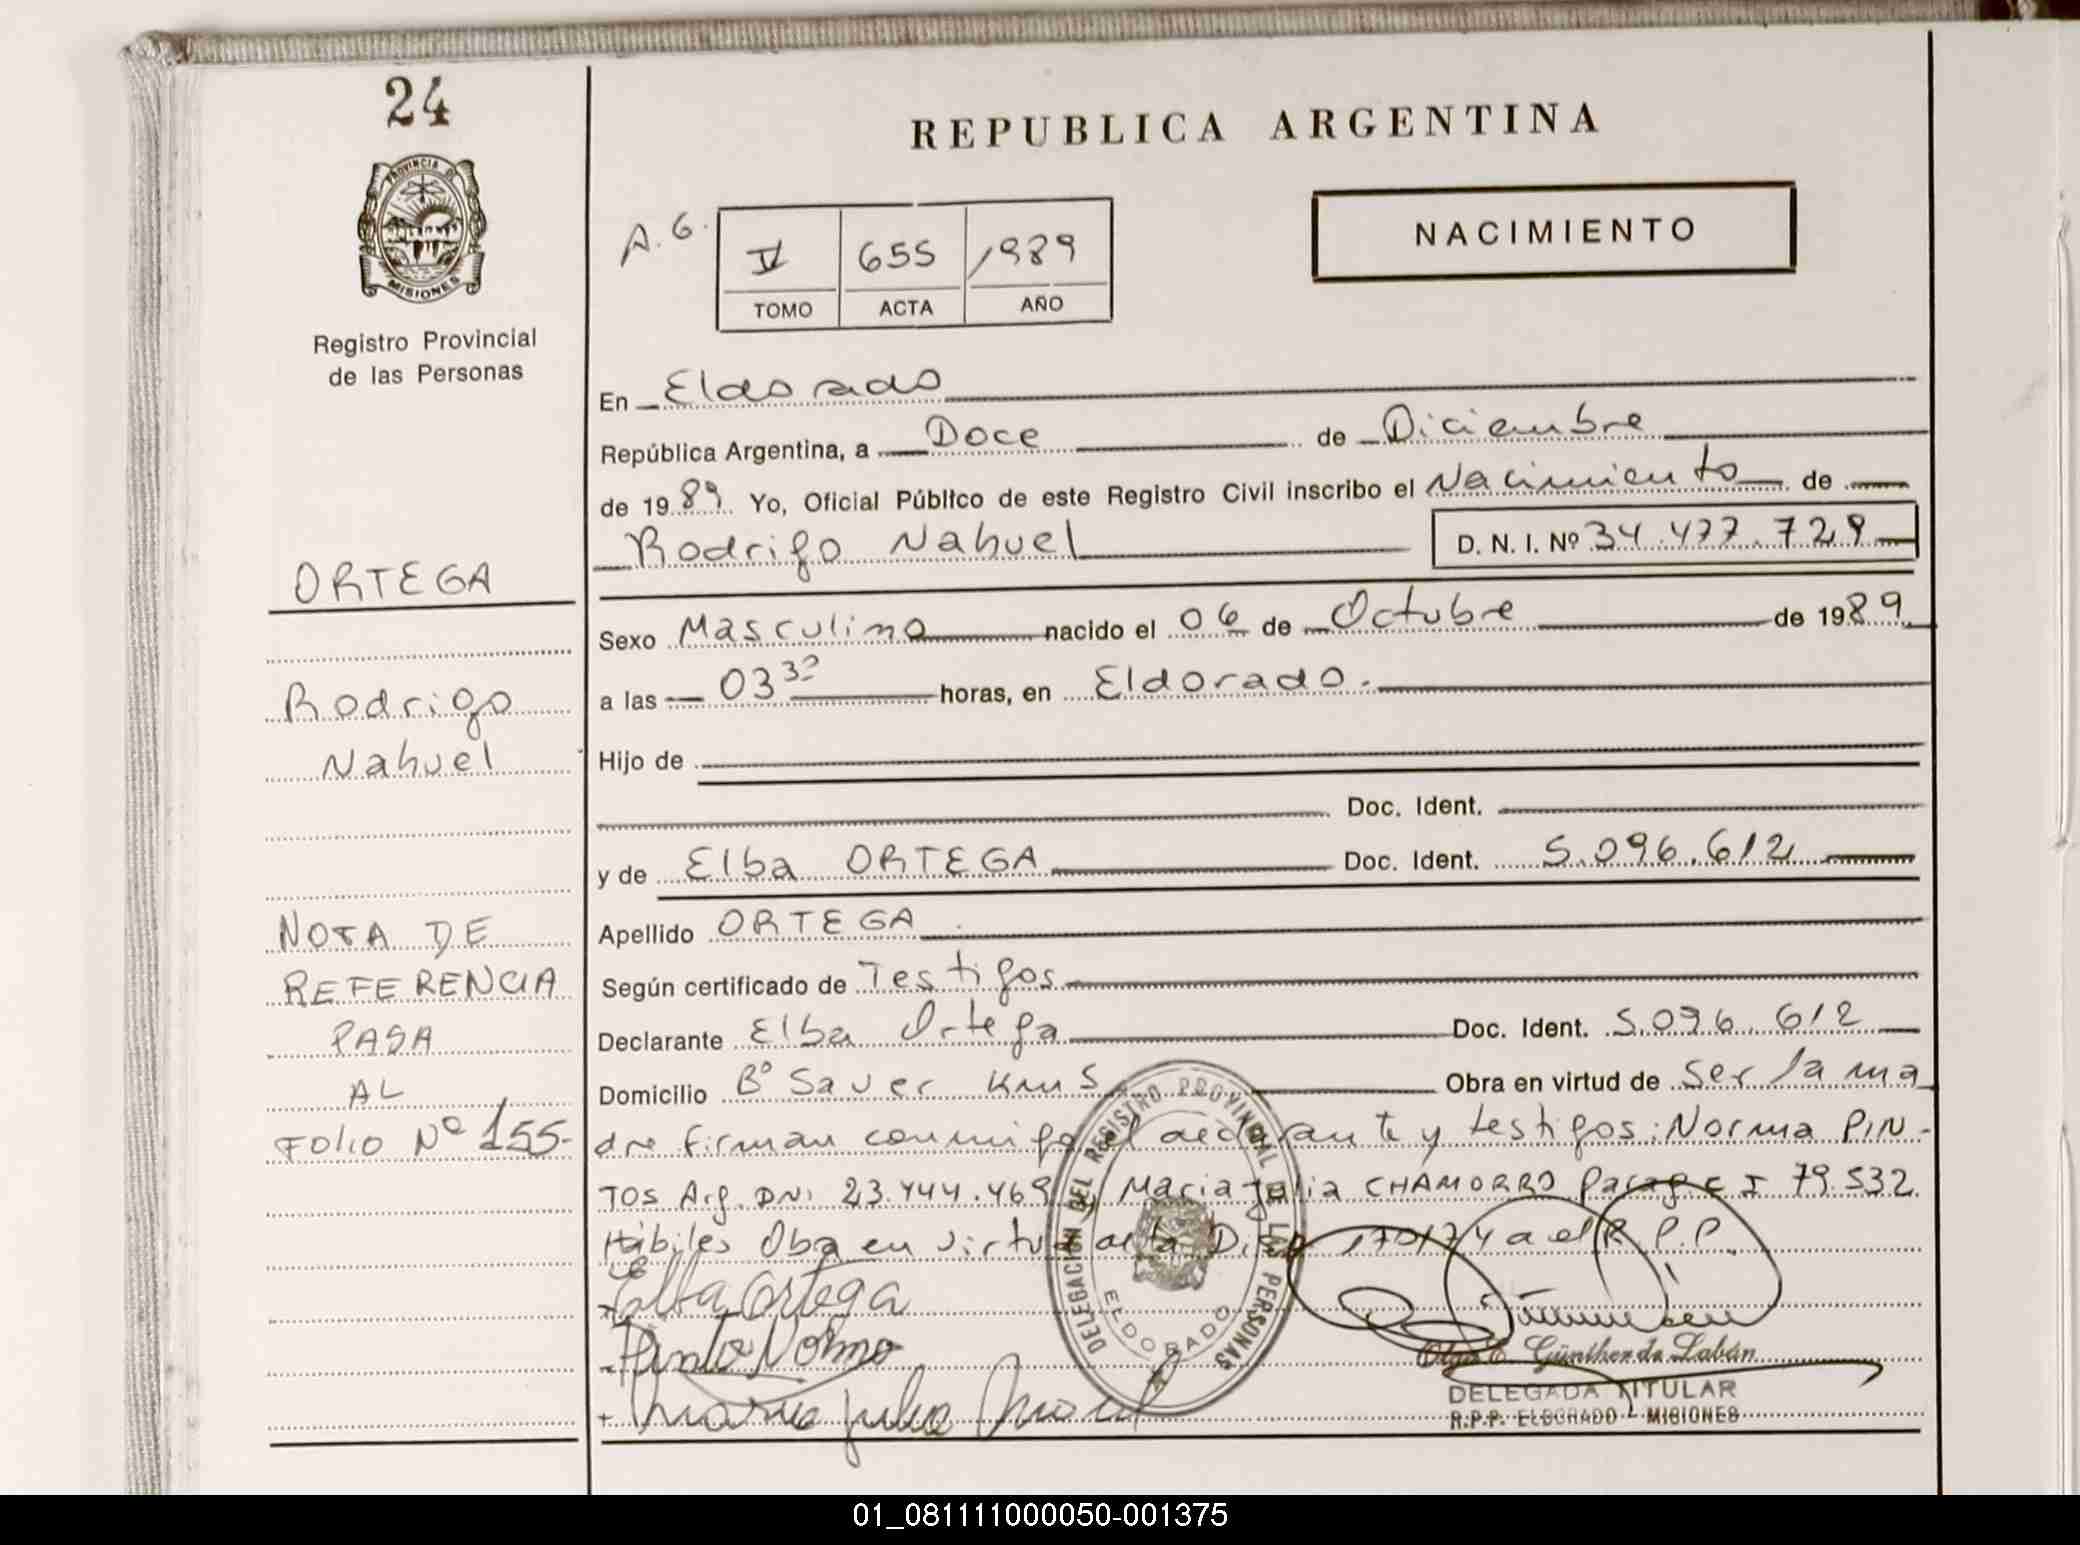 24
PROVINCIA DE
MISIONES
Registro Provincial
de las Personas
ORTEGA
Rodrigo
Nahuel
NOTA DE
REFERENCIA
PASA
AL
FOLIO Nº 155-
REPUBLICA ARGENTINA
A. G.
655 1989
TOMO ACTA AÑO
NACIMIENTO
En Eldorado
República Argentina, a Doce de Diciembre
de 1989. Yo, Oficial Público de este Registro Civil inscribo el Nacimiento de
Rodrigo Nahuel D. N. I. Nº 34.477.729
Sexo Masculino nacido el 06 de Octubre de 1989
a las 03 30 horas, en Eldorado.
Hijo de
Doc. Ident.
y de Elba ORTEGA Doc. Ident. 5.096.612
Apellido ORTEGA
Según certificado de Testigos
Declarante Elba Ortega Doc. Ident. 5.096.612
Domicilio Bº Sauer Km 5 Obra en virtud de ser la ma
dre firman conmigo el declarante y testigos: Norma PIN-
TOS Arg. DNI 23.444.469 y Maria Julia CHAMORRO Parag. C I 79.532
Hábiles Obra en virtud de la Disp 170/74 de el R.P.P.
Elba Ortega
Pinto Norma
Maria Julia
DELEGACIÓN DEL REGISTRO PROVINCIAL DE LAS PERSONAS
ELDORADO
Olga E. Günther de Labán
DELEGADA TITULAR
R.P.P. ELDORADO - MISIONES
01_081111000050-001375